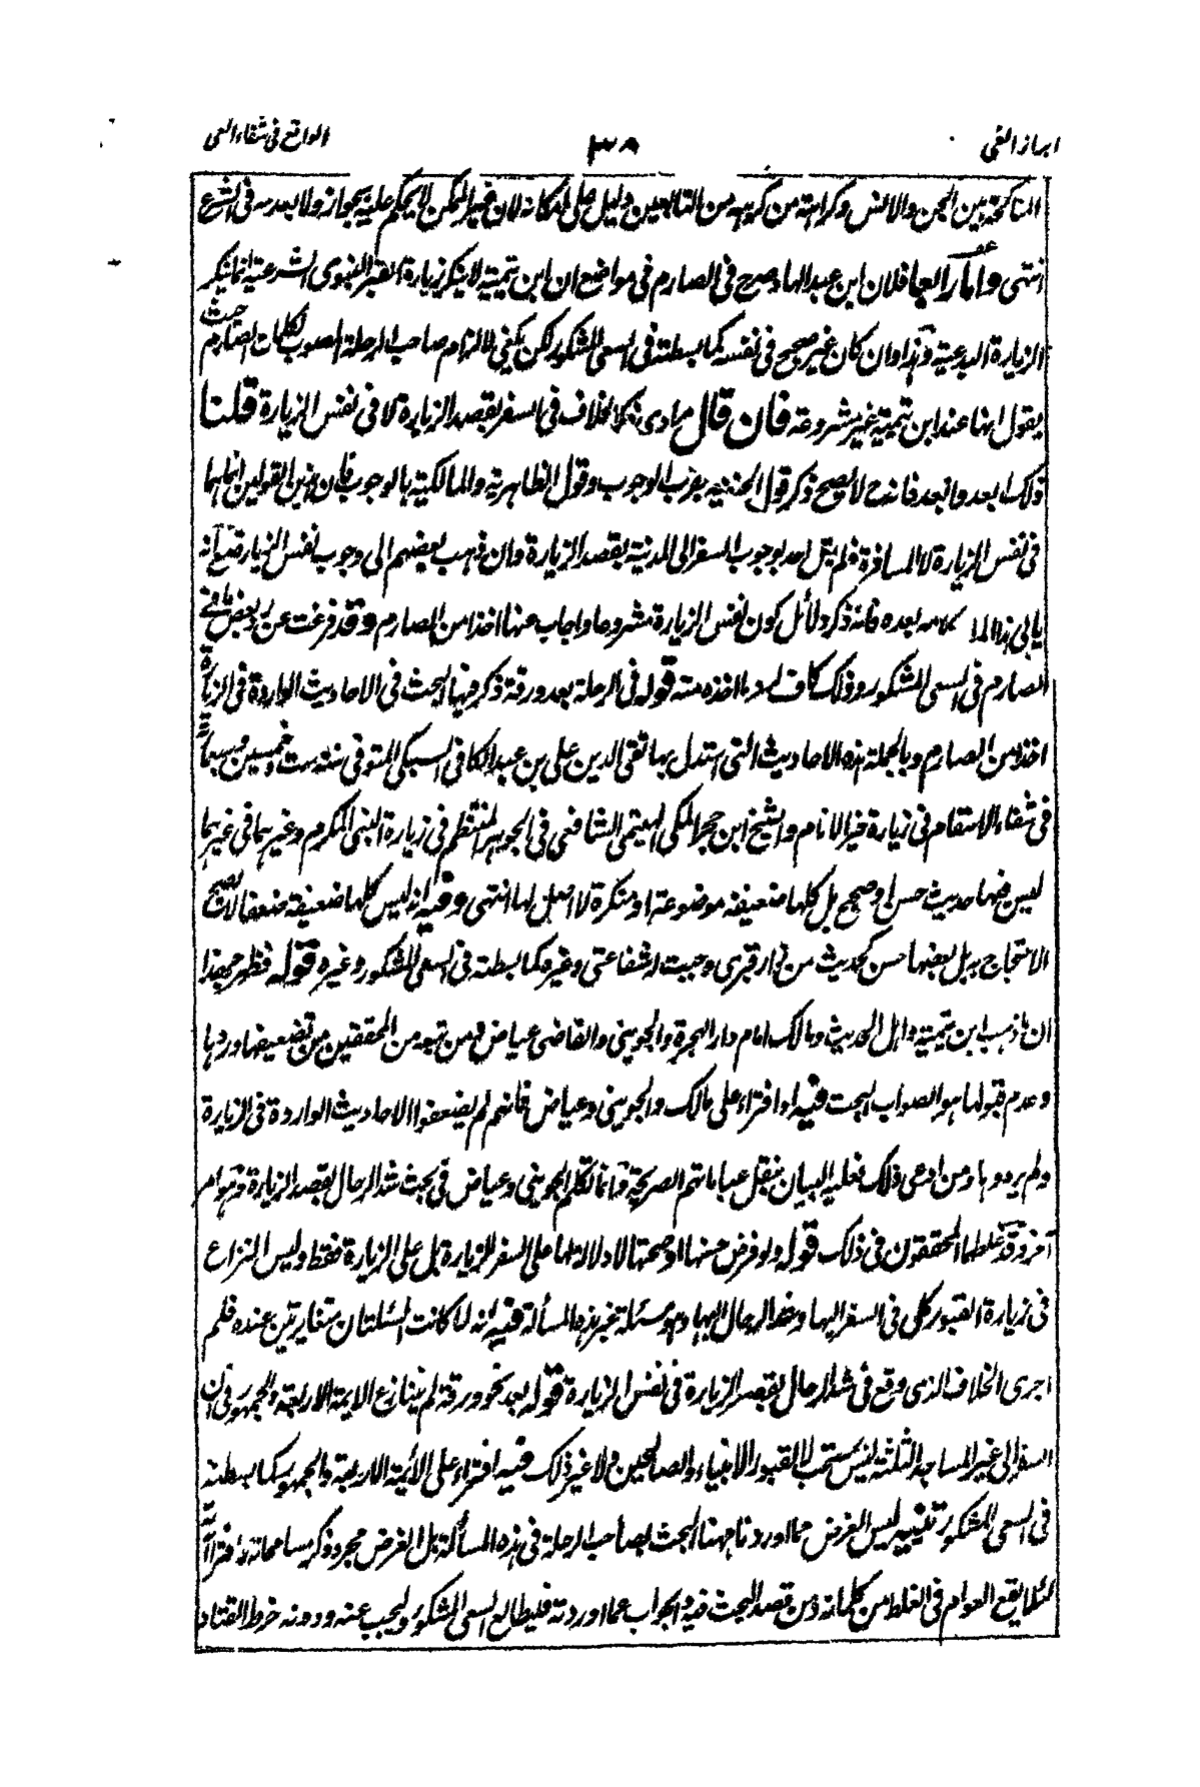 ابراز الغي
٣٨
الواقع في شفاء العي
المناكحة بين الجن والانس وكراهة من كرهه من التابعين دليل على امكانه لان غير الممكن لا يحكم عليه بجواز ولا بعدمه في الشرع
انتهى واما رابعا فلان ابن عبد الهادي صرح في الصارم في مواضع ان ابن تيمية لا ينكر زيارة القبر النبوي الشرعية انما ينكر
الزيارة البدعية وهذا وان كان غير صحيح في نفسه كما بسطته في السعي المشكور لكن يكفي لالزام صاحب الرحلة المصوب لكلمات الصارم حيث
يقول انها عند ابن تيمية غير مشروعة فان قال مرادي بذكر الخلاف في السفر بقصد الزيارة لا في نفس الزيارة قلنا
ذلك ابعد وابعد فانه ح لا يصح ذكر قول الحنفية بقرب الوجوب وقول الظاهرية والمالكية بالوجوب فان هذين القولين انما هما
في نفس الزيارة لا المسافرة فلم يقل احد بوجوب السفر الى المدينة بقصد الزيارة وان ذهب بعضهم الى وجوب نفس الزيارة مع انه
يابى هذا المراد كلامه بعده فانه ذكر دلائل كون نفس الزيارة مشروعا واجاب عنها اخذا من الصارم وقد فرغت عن رد بعض ما في
الصارم في السعي المشكور وذلك كاف لرد ما اخذه منه قوله في الرحلة بعد ورقة ذكر فيها البحث في الاحاديث الواردة في الزيارة
اخذا من الصارم وبالجملة هذه الاحاديث التي استدل بها تقي الدين علي بن عبد الكافي السبكي المتوفى سنة ست وخمسين وسبعمائة
في شفاء الاسقام في زيارة خير الانام والشيخ ابن حجر المكي الهيتمي الشافعي في الجوهر المنتظم في زيارة النبي المكرم وغيرهما في غيرهما
ليس فيها حديث حسن او صحيح بل كلها ضعيفة موضوعة او منكرة لا اصل لها انتهى وفيه انه ليس كلها ضعيفة ضعفا لا يصح
الاحتجاج به بل بعضها حسن كحديث من زار قبري وجبت له شفاعتي وغيره كما بسطته في السعي المشكور وغيره قوله فظهر بهذا
ان ما ذهب ابن تيمية واهل الحديث ومالك امام دار الهجرة والجويني والقاضي عياض ومن تبعه من المحققين من تضعيفها وردها
وعدم قبولها هو الصواب البحت فيه افتراء على مالك والجويني وعياض فانهم لم يضعفوا الاحاديث الواردة في الزيارة
ولم يردوها ومن ادعى ذلك فعليه البيان بنقل عباراتهم الصريحة وانما تكلم الجويني وعياض في بحث شد الرحال بقصد الزيارة وهو امر
آخر وقد غلطهما المحققون في ذلك قوله ولو فرض حسنها او صحتها لا دلالة لها على السفر للزيارة بل على الزيارة فقط وليس النزاع
في زيارة القبور كل في السفر اليها وشد الرحال اليها وهو مسئلة غير هذه المسألة فيه انه لما كانت المسئلتان متغايرتين عنده فلم
اجرى الخلاف الذي وقع في شد الرحال بقصد الزيارة في نفس الزيارة قوله بعد نحو ورقة لم ينازع الايمة الاربعة والجمهور في ان
السفر الى غير المساجد الثلثة ليس بمستحب لا لقبور الانبياء والصالحين ولا غير ذلك فيه افتراء على الأئمة الاربعة والجمهور كما بسطته
في السعي المشكور تنبيه ليس الغرض مما اوردنا ههنا البحث بصاحب الرحلة في هذه المسألة بل الغرض مجرد ذكر مسامحاته وافتراآته
لئلا يقع العوام في الغلط من كلماته ومن قصد البحث فيه والجواب عما اوردته فليطالع السعي المشكور وليجب عنه ودونه خرط القتاد